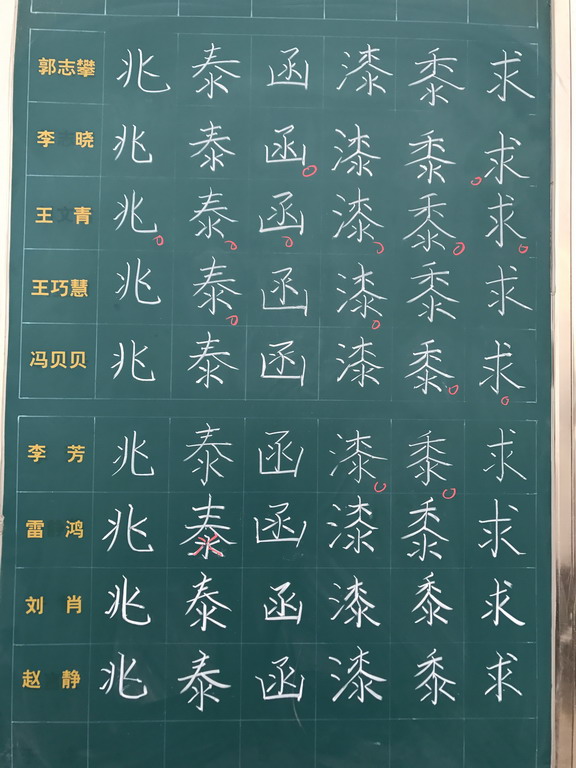 郭志攀 兆 泰 函 漆 黍 求
李晓 兆 泰 函 漆 黍 求
王青 兆 泰 函 漆 黍 求
王巧慧 兆 泰 函 漆 黍 求
冯贝贝 兆 泰 函 漆 黍 求
李芳 兆 泰 函 漆 黍 求
雷鸿 兆 泰 函 漆 黍 求
刘肖 兆 泰 函 漆 黍 求
赵静 兆 泰 函 漆 黍 求